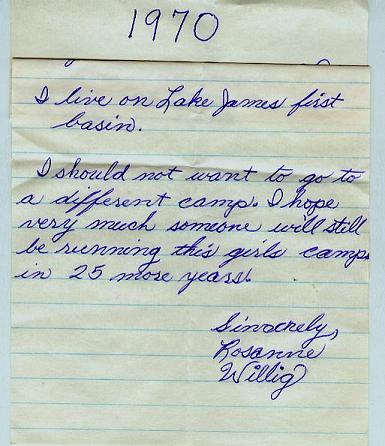 1970
I live on Lake James first
basin.
I should not want to go to
a different camp. I hope
very much someone will still
be running this girls camp
in 25 more years!
Sincerely,
Rosanne
Willig